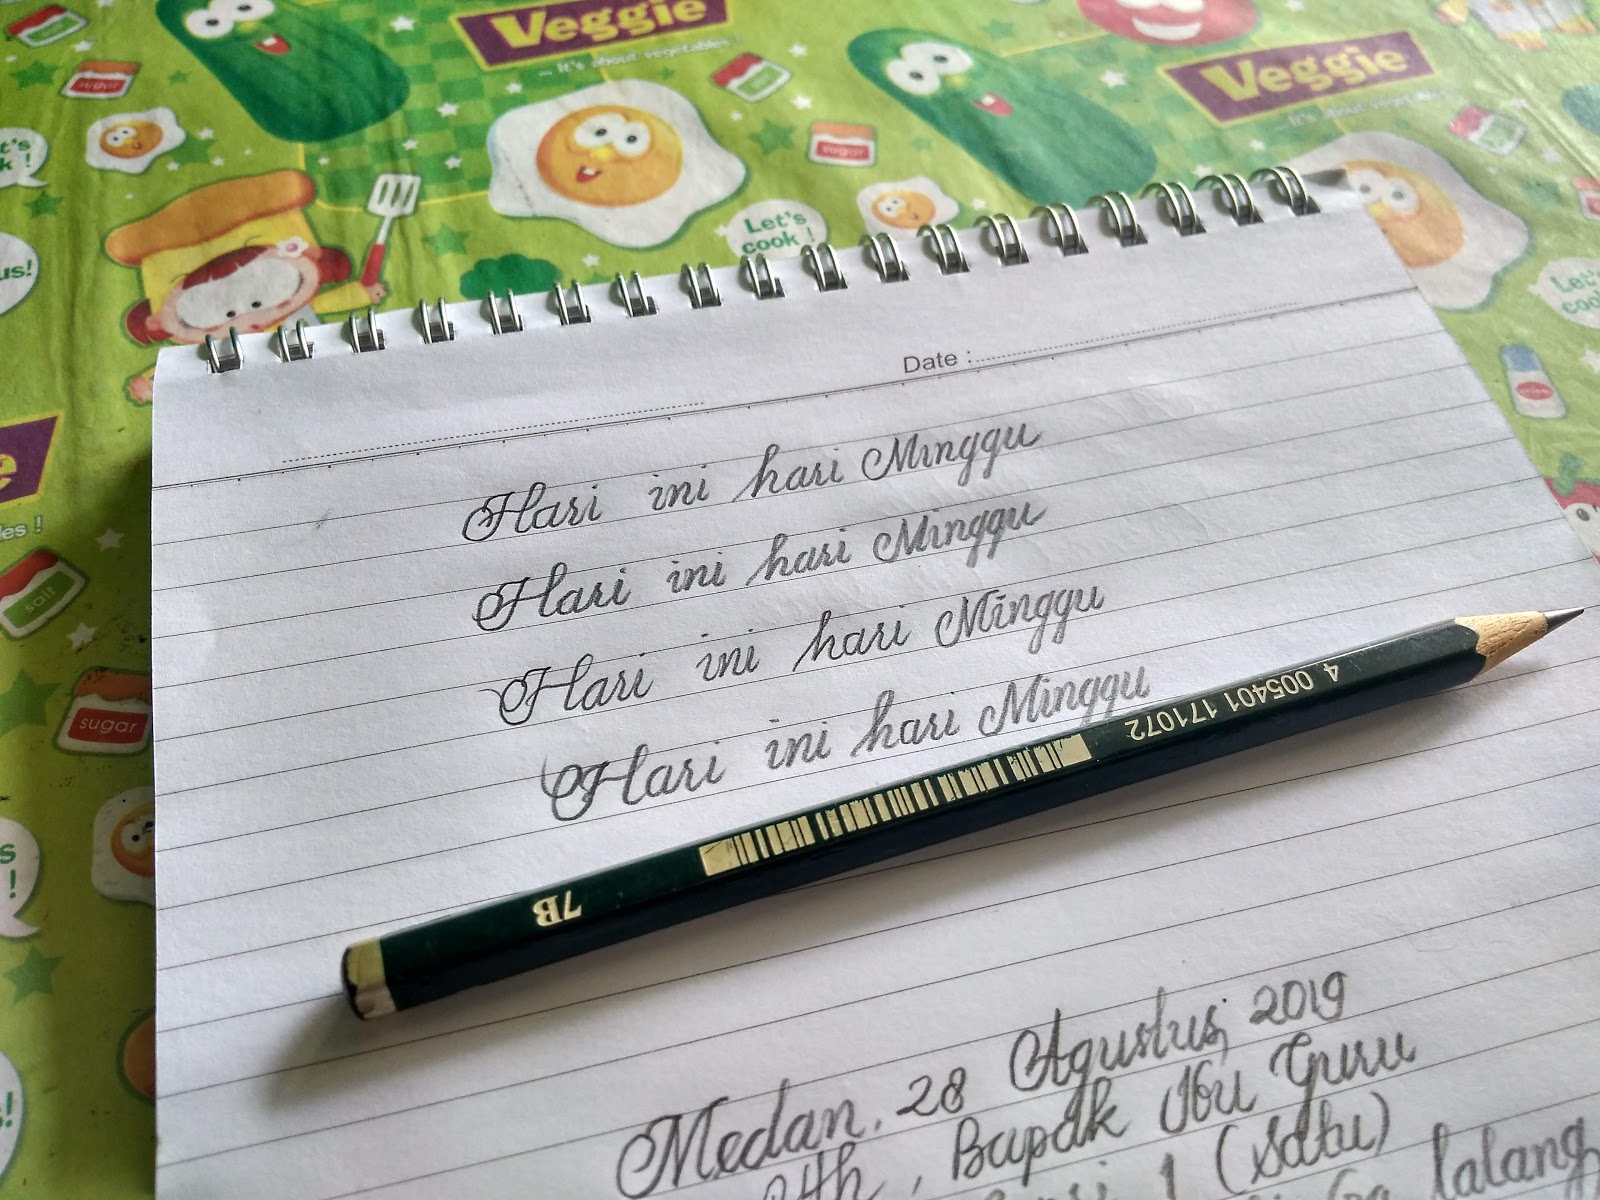 Veggie
... It's about vegetables !
Veggie
... It's about vegetables
sugar
sugar
Let's
cook !
Let's
salt
sugar
Date :
Hari ini hari Minggu
Hari ini hari Minggu
Hari ini hari Minggu
Hari ini hari Minggu
4 005401 171072
7B
Medan, 28 Agustus, 2019
Yth, Bapak Ibu Guru
1 (Satu)
lalang